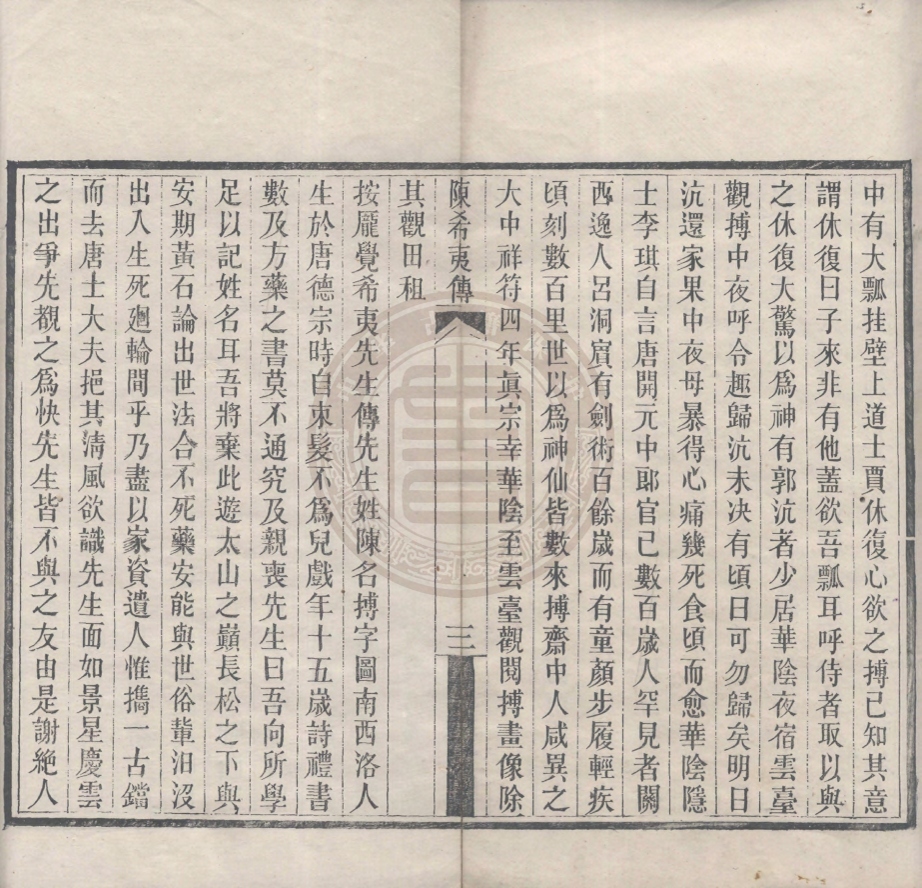 中有大瓢挂壁上道士賈休復心欲之摶已知其意
謂休復曰子來非有他蓋欲吾瓢耳呼侍者取以與
之休復大驚以爲神有郭沆者少居華陰夜宿雲臺
觀摶中夜呼令趣歸沆未决有頃曰可勿歸矣明日
沆還家果中夜母暴得心痛幾死食頃而愈華陰隱
士李琪自言唐開元中郎官已數百歲人罕見者關
西逸人呂洞賓有劍術百餘歲而有童顏步履輕疾
頃刻數百里世以爲神仙皆數來摶齋中人咸異之
大中祥符四年眞宗幸華陰至雲臺觀閱摶畫像除
陳希夷傳 三
其觀田租
按龎覺希夷先生傳先生姓陳名摶字圖南西洛人
生於唐德宗時自束髮不爲兒戲年十五歲詩禮書
數及方藥之書莫不通究及親喪先生曰吾向所學
足以記姓名耳吾將棄此遊太山之巓長松之下與
安期黃石論出世法合不死藥安能與世俗輩汨沒
出入生死廽輪間乎乃盡以家資遺人惟攜一古鐺
而去唐士大夫挹其淸風欲識先生面如景星慶雲
之出爭先覩之爲快先生皆不與之友由是謝絶人